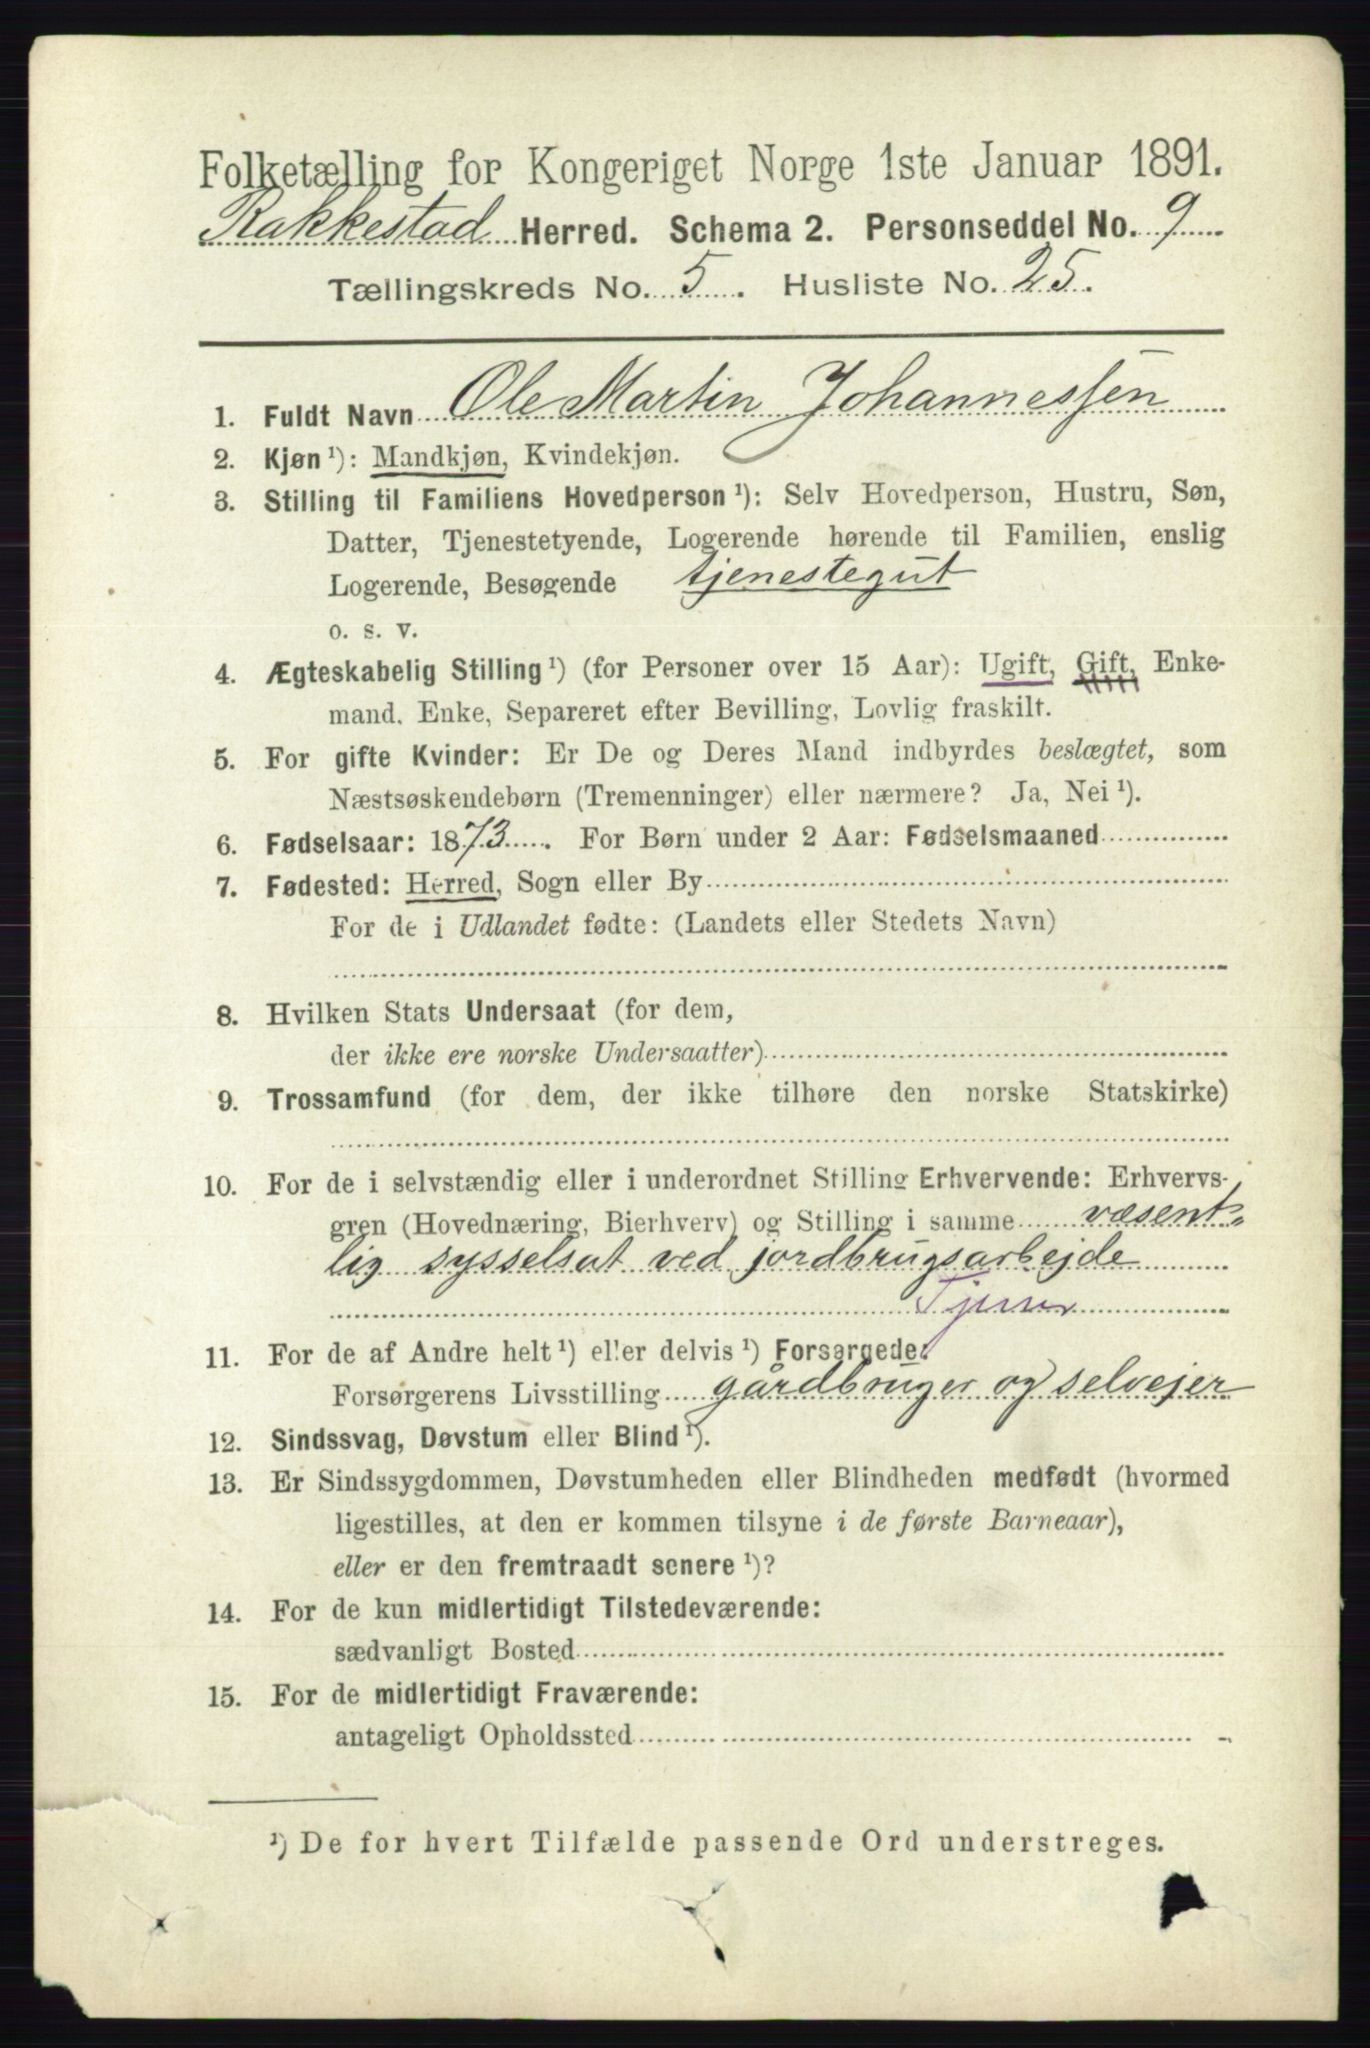 Folketælling for Kongeriget Norge 1ste Januar 1891.
Rakkestad Herred. Schema 2. Personseddel No. 9
Tællingskreds No. 5. Husliste No. 25.
1. Fuldt Navn Ole Martin Johannessen
2. Kjøn ¹): Mandkjøn, Kvindekjøn.
3. Stilling til Familiens Hovedperson ¹): Selv Hovedperson, Hustru, Søn,
Datter, Tjenestetyende, Logerende hørende til Familien, enslig
Logerende, Besøgende tjenestegut
o. s. v.
4. Ægteskabelig Stilling ¹) (for Personer over 15 Aar): Ugift, Gift, Enke-
mand, Enke, Separeret efter Bevilling, Lovlig fraskilt.
5. For gifte Kvinder: Er De og Deres Mand indbyrdes beslægtet, som
Næstsøskendebørn (Tremenninger) eller nærmere? Ja, Nei ¹).
6. Fødselsaar: 1873. For Børn under 2 Aar: Fødselsmaaned
7. Fødested: Herred, Sogn eller By
For de i Udlandet fødte: (Landets eller Stedets Navn)
8. Hvilken Stats Undersaat (for dem,
der ikke ere norske Undersaatter)
9. Trossamfund (for dem, der ikke tilhøre den norske Statskirke)
10. For de i selvstændig eller i underordnet Stilling Erhvervende: Erhvervs-
gren (Hovednæring, Bierhverv) og Stilling i samme væsent-
lig sysselsat ved jordbrugsarbejde
Tjener
11. For de af Andre helt ¹) eller delvis ¹) Forsørgede:
Forsørgerens Livsstilling gårdbruger og selvejer
12. Sindssvag, Døvstum eller Blind ¹).
13. Er Sindssygdommen, Døvstumheden eller Blindheden medfødt (hvormed
ligestilles, at den er kommen tilsyne i de første Barneaar),
eller er den fremtraadt senere ¹)?
14. For de kun midlertidigt Tilstedeværende:
sædvanligt Bosted
15. For de midlertidigt Fraværende:
antageligt Opholdssted
¹) De for hvert Tilfælde passende Ord understreges.